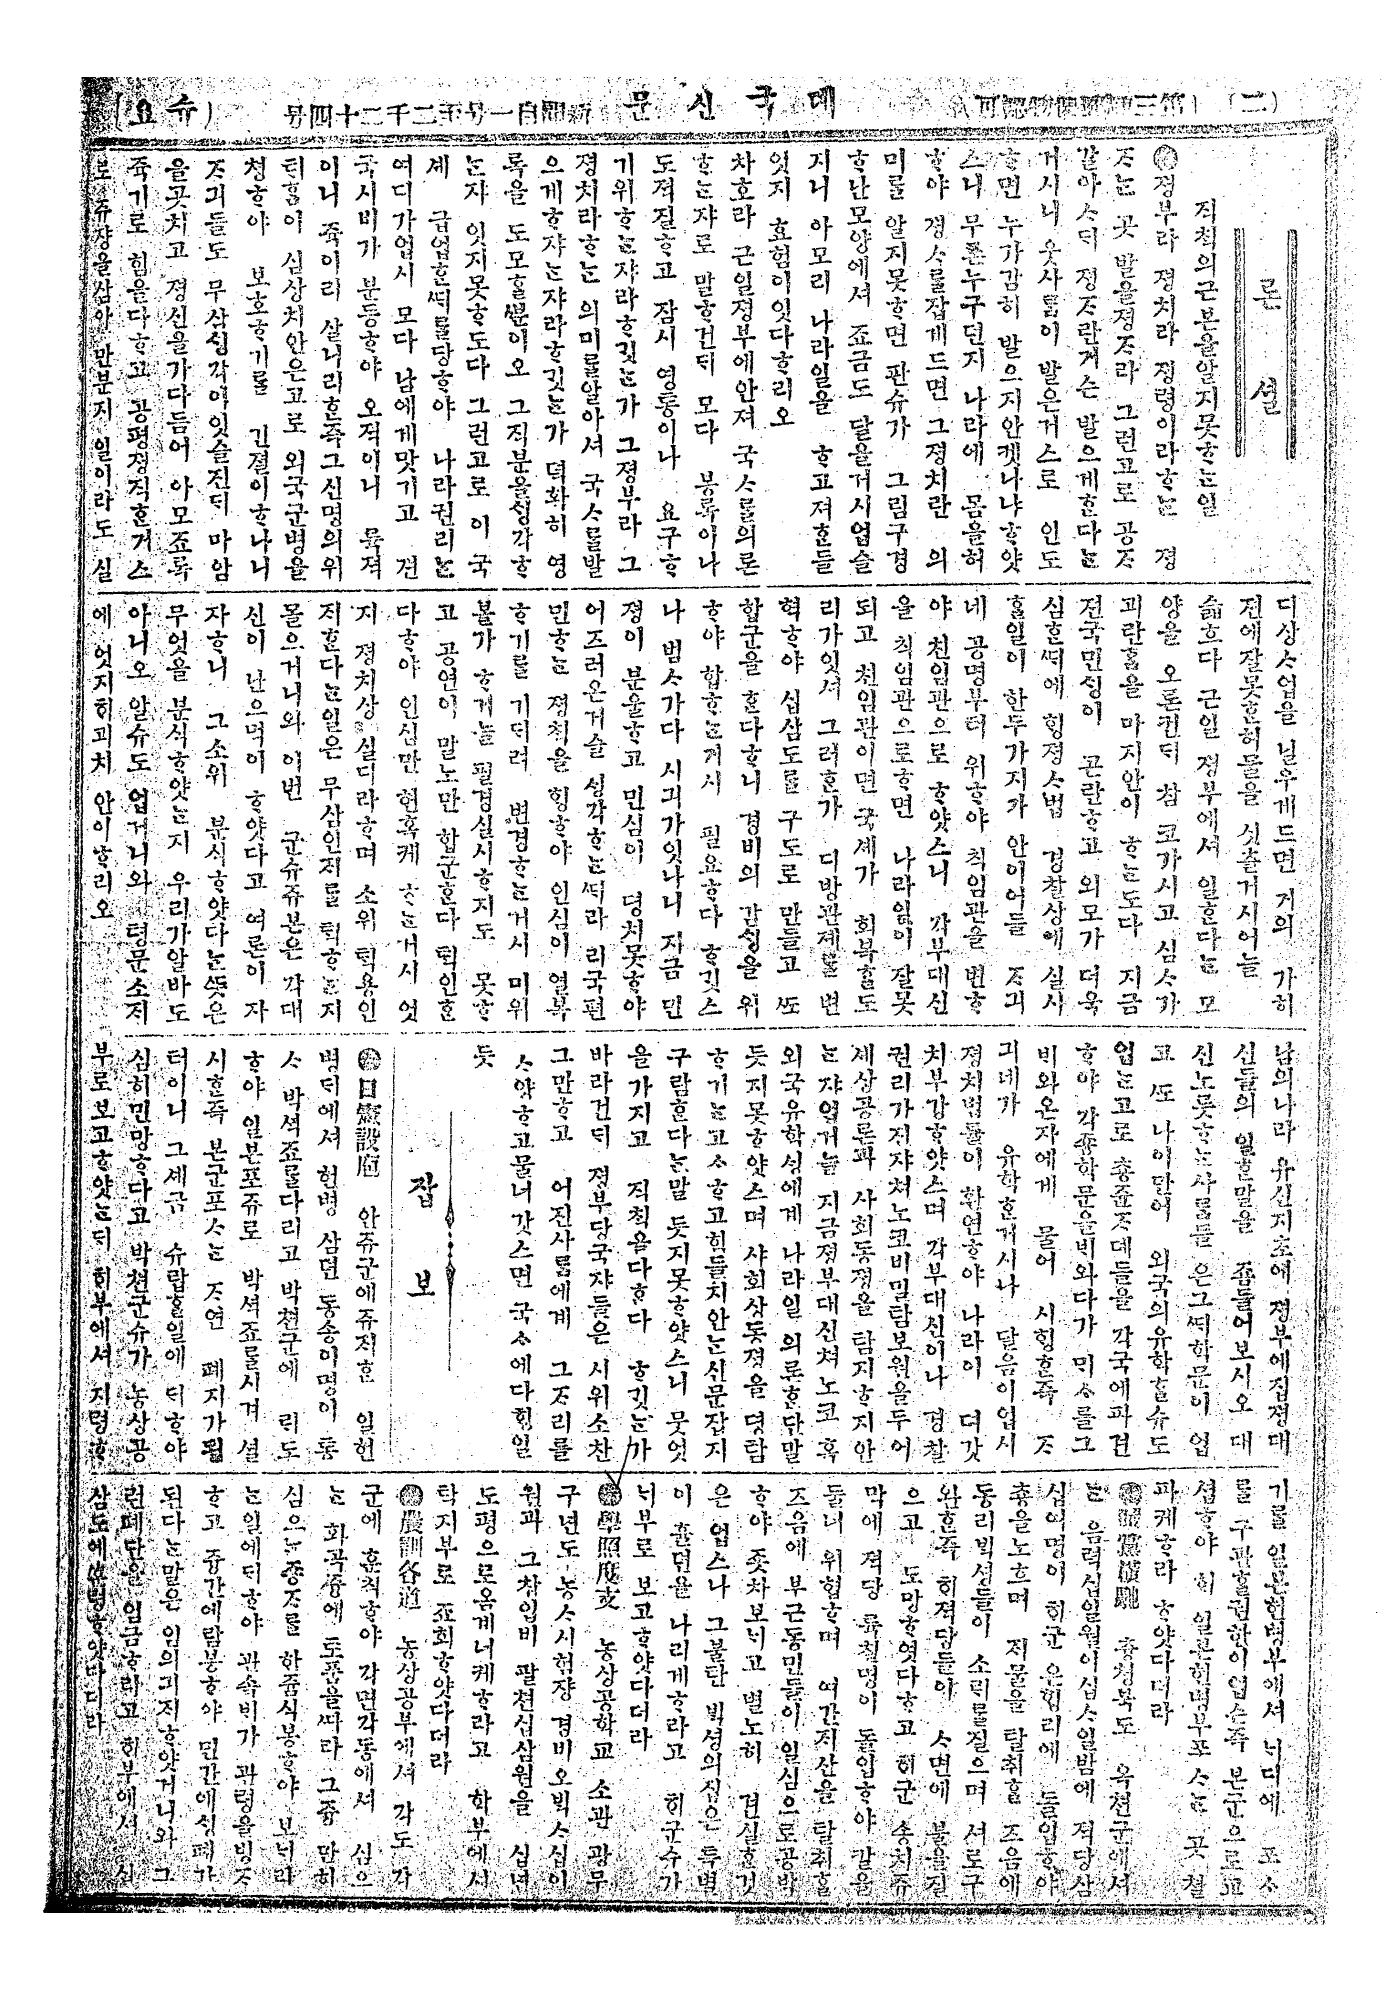 (二)
뎨국신문
(슈요)
론셜
직칙의근본을알지못ᄒᆞᄂᆞᆫ일
졍부라 졍치라 졍령이라ᄒᆞᄂᆞᆫ 졍
ᄌᆞᄂᆞᆫ 곳 발을졍ᄌᆞ라 그런고로 공ᄌᆞ
갈아ᄉᆞᄃᆡ 졍ᄌᆞ란거슨 발으게ᄒᆞᆫ다ᄂᆞᆫ
거시니 웃사ᄅᆞᆷ이 발은거스로 인도
ᄒᆞ면 누가감히 발으지안켓나냐ᄒᆞ얏
스니 무론누구던지 나라에 몸을허
ᄒᆞ야 경ᄉᆞ를잡게드면 그졍치란 의
미를 알지못ᄒᆞ면 판슈가 그림구경
ᄒᆞ난모양에셔 죠금도 달을거시업슬
지니 아모리 나라일을 ᄒᆞ고져ᄒᆞᆫ들
엇지 효험이잇다ᄒᆞ리오
차호라 근일졍부에안져 국ᄉᆞ를의론
ᄒᆞᄂᆞᆫ쟈로 말ᄒᆞ건ᄃᆡ 모다 봉록이나
도젹질ᄒᆞ고 잠시 영통이나 요구ᄒᆞ
기위ᄒᆞᄂᆞᆫ쟈라ᄒᆞ깃ᄂᆞᆫ가 그졍부라 그
졍치라ᄒᆞᄂᆞᆫ 의미를알아셔 국ᄉᆞ를발
으게ᄒᆞ쟈ᄂᆞᆫ쟈라ᄒᆞ깃ᄂᆞᆫ가 뎍확히 영
록을 도모ᄒᆞᆯᄲᅮᆫ이오 그직분을ᄉᆡᆼ각ᄒᆞ
ᄂᆞᆫ쟈 잇지못ᄒᆞ도다 그런고로 이 국
셰 급업ᄒᆞᆫᄯᆡ를당ᄒᆞ야 나라권리ᄂᆞᆫ
여디가업시 모다 남에게맛기고 젼
국시비가 분등ᄒᆞ야 오젹이니 륙젹
이니 쥭이리 살니리ᄒᆞᆫ즉그신명의위
ᄐᆡ홈이 심상치안은고로 외국군병을
쳥ᄒᆞ야 보호ᄒᆞ기를 긴졀이ᄒᆞ나니
ᄌᆞ긔들도 무삼ᄉᆡᆼ각이잇슬진ᄃᆡ 마암
을곳치고 졍신을가다듬어 아모죠록
쥭기로 힘을다ᄒᆞ고 공평졍직ᄒᆞᆫ거스
로 쥬쟝을삼아 만분지 일이라도 실
디상ᄉᆞ업을 닐우게드면 거의 가히
젼에잘못ᄒᆞᆫ허물을 싯슬거시어늘
슯흐다 근일 졍부에셔 일ᄒᆞᆫ다ᄂᆞᆫ 모
양을 오론컨ᄃᆡ 참 코가시고 심ᄉᆞ가
괴란ᄒᆞᆷ을 마지안이 ᄒᆞᄂᆞᆫ도다 지금
젼국민ᄉᆡᆼ이 곤란ᄒᆞ고 외모가 더욱
심ᄒᆞᆫᄯᆡ에 ᄒᆡᆼ졍ᄉᆞ법 경찰상에 실사
ᄒᆞᆯ일이 한두가지가 안이어들 ᄌᆞ긔
네 공명부터 위ᄒᆞ야 칙임관을 변ᄒᆞ
야 친임관으로 ᄒᆞ얏스니 각부대신
을 칙임관으로ᄒᆞ면 나라일이 잘못
되고 친임관이면 국셰가 회복ᄒᆞᆯ도
리가잇셔 그러ᄒᆞᆫ가 디방관졔를 변
혁ᄒᆞ야 십삼도를 구도로 만들고 ᄯᅩ
합군을 ᄒᆞᆫ다ᄒᆞ니 경비의 감ᄉᆡᆼ을 위
ᄒᆞ야 합ᄒᆞᄂᆞᆫ거시 필요ᄒᆞ다 ᄒᆞ깃스
나 범ᄉᆞ가다 시긔가잇나니 지금 민
졍이 분울ᄒᆞ고 민심이 뎡치못ᄒᆞ야
어즈러온거슬 ᄉᆡᆼ각ᄒᆞᄂᆞᆫᄯᆡ라 리국편
민ᄒᆞᄂᆞᆫ 졍칙을 ᄒᆡᆼᄒᆞ야 인심이 열복
ᄒᆞ기를 기ᄃᆞ려 변경ᄒᆞᄂᆞᆫ거시 미위
불가 ᄒᆞ거늘 필경실시ᄒᆞ지도 못ᄒᆞ
고 공연이 말노만 합군ᄒᆞᆫ다 ᄐᆡᆨ인ᄒᆞᆫ
다ᄒᆞ야 인심만 현혹케 ᄒᆞᄂᆞᆫ거시 엇
지 졍치상 실디라ᄒᆞ며 소위 ᄐᆡᆨ용인
ᄌᆡᄒᆞᆫ다ᄂᆞᆫ일은 무삼인ᄌᆡ를 ᄐᆡᆨᄒᆞᄂᆞᆫ지
몰으거니와 이번 군슈쥬본은 각대
신이 난으먹이 ᄒᆞ얏다고 여론이 자
자ᄒᆞ니 그소위 분식ᄒᆞ얏다ᄂᆞᆫᄯᅳᆺ은
무엇을 분식ᄒᆞ얏ᄂᆞᆫ지 우리가알바도
아니오 알슈도 업거니와 뎡문소ᄌᆡ
에 엇지히괴치 안이ᄒᆞ리오
남의나라 유신지초에 졍부에집졍대
신들의 일ᄒᆞᆫ말을 좀들어보시오 대
신노릇ᄒᆞᄂᆞᆫ사ᄅᆞᆷ들 은그ᄯᆡ학문이 업
고 ᄯᅩ 나이만어 외국의유학ᄒᆞᆯ슈도
업ᄂᆞᆫ고로 총쥰ᄌᆞ뎨들을 각국에파견
ᄒᆞ야 각죵학문을ᄇᆡ와다가 ᄆᆡᄉᆞ를그
ᄇᆡ와온자에게 물어 시ᄒᆡᆼᄒᆞᆫ즉 ᄌᆞ
긔네가 유학ᄒᆞᆫ거시나 달음이업시
졍치법률이 환연ᄒᆞ야 나라이 뎌갓
치부강ᄒᆞ얏스며 각부대신이나 경찰
권리가진쟈쳐노코비밀탐보원을두어
셰상공론과 사회동졍을 탐지ᄒᆞ지안
ᄂᆞᆫ쟈업거늘 지금졍부대신쳐 노코 혹
외국유학ᄉᆡᆼ에게 나라일 의론ᄒᆞᆫ단말
듯지못ᄒᆞ얏스며 샤회상동졍을 뎡탐
ᄒᆞ기ᄂᆞᆫ고ᄉᆞᄒᆞ고힘들지안ᄂᆞᆫ신문잡지
구람ᄒᆞᆫ다ᄂᆞᆫ말 듯지못ᄒᆞ얏스니 무엇
을가지고 직칙을다ᄒᆞ다 ᄒᆞ깃ᄂᆞᆫ가
바라건ᄃᆡ 졍부당국쟈들은 시위소찬
그만ᄒᆞ고 어진사ᄅᆞᆷ에게 그ᄌᆞ리를
ᄉᆞ양ᄒᆞ고물너갓스면 국ᄉᆞ에다ᄒᆡᆼ일
듯
잡보
日憲設庖 안쥬군에쥬ᄌᆡᄒᆞᆫ 일헌
병ᄃᆡ에셔 헌병 삼뎐 동송이명이 통
ᄉᆞ 박셕죠를다리고 박쳔군에 ᄅᆡ도
ᄒᆞ야 일본포쥬로 박셕죠를시겨 셜
시ᄒᆞᆫ즉 본군포ᄉᆞᄂᆞᆫ ᄌᆞ연 폐지가될
터이니 그셰금 슈랍ᄒᆞᆯ일에 ᄃᆡᄒᆞ야
심히민망ᄒᆞ다고 박쳔군슈가 농상공
부로보고ᄒᆞ얏ᄂᆞᆫᄃᆡ 히부에셔 지령ᄒᆞ
기를 일본헌병부에셔 ᄂᆡ디에 포ᄉᆞ
를 구관ᄒᆞᆯ권한이업슨즉 본군으로교
셥ᄒᆞ야 히 일본헌병부포ᄉᆞᄂᆞᆫ 곳 쳘
파케ᄒᆞ라 ᄒᆞ얏다더라
충쳥북도 옥쳔군에셔
ᄂᆞᆫ 음력십일월이십ᄉᆞ일밤에 젹당삼
십여명이 히군 은힝리에 돌입ᄒᆞ야
총을노흐며 ᄌᆡ물을 탈취ᄒᆞᆯ 즈음에
동리ᄇᆡᆨ셩들이 소ᄅᆡ를질으며 셔로구
완ᄒᆞᆫ즉 히젹당들이 ᄉᆞ면에 불을질
으고 도망ᄒᆞ엿다ᄒᆞ고 히군 송치쥬
막에 젹당 륙칠명이 돌입ᄒᆞ야 칼을
둘너 위협ᄒᆞ며 여간ᄌᆡ산을 탈취ᄒᆞᆯ
즈음에 부근동민들이 일심으로공박
ᄒᆞ야 좃차보ᄂᆡ고 별노히 견실ᄒᆞᆫ것
은 업스나 그불탄 ᄇᆡᆨ셩의집은 특별
이 휼뎐을 나리게ᄒᆞ라고 히군슈가
ᄂᆡ부로 보고ᄒᆞ얏다더라
學照度支 농상공학교 소관 광무
구년도 농ᄉᆞ시험쟝 경비 오ᄇᆡᆨᄉᆞ십이
원과 그창입비 팔쳔십삼원을 십년
도평으로옴겨ᄂᆡ케ᄒᆞ라고 학부에셔
탁지부로 죠회ᄒᆞ얏다더라
農訓各道 농상공부에셔 각도 각
군에 훈칙ᄒᆞ야 각면각동에셔 심으
ᄂᆞᆫ 화곡즁에 토품을ᄯᅡ라 그즁 만히
심으ᄂᆞᆫ죵ᄌᆞ를 한줌식봉ᄒᆞ야 보ᄂᆡ라
ᄂᆞᆫ일에ᄃᆡᄒᆞ야 관속ᄇᆡ가 관령을빙ᄌᆞ
ᄒᆞ고 즁간에람봉ᄒᆞ야 민간에ᄉᆡᆼ폐가
된다ᄂᆞᆫ말은 임의긔ᄌᆡᄒᆞ얏거니와 그
런폐단을 엄금ᄒᆞ라고 히부에셔 십
삼도에 훈령ᄒᆞ얏다더라